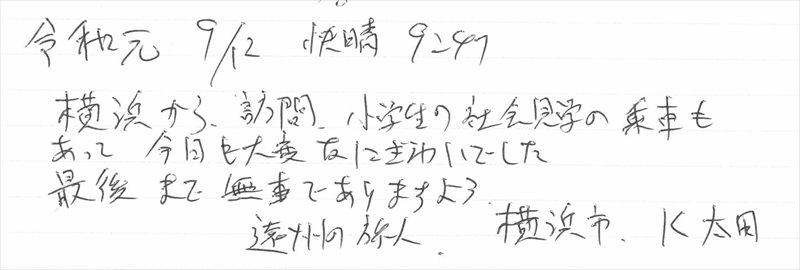 令和元 9/12 快晴 9:47
横浜から、訪問、小学生の社会見学の乗車も
あって 今日も大変なにぎわいでした
最後まで無事でありますよう
遠州の旅人. 横浜市、K太田